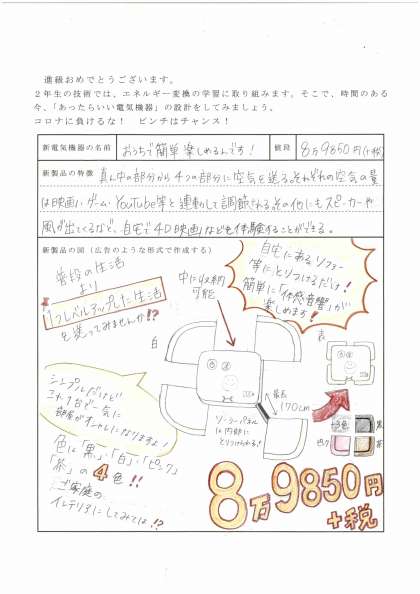 進級おめでとうございます。
２年生の技術では、エネルギー変換の学習に取り組みます。そこで、時間のある
今、「あったらいい電気機器」の設計をしてみましょう。
コロナに負けるな！　ピンチはチャンス！
新電気機器の名前　おうちで簡単楽しめるんです!　値段　8万9850円(+税)
新製品の特徴　真ん中の部分から4つの部分に空気を送る。それぞれの空気の量
は映画・ゲーム・YouTube等と連動して調節される。その他にもスピーカーや
風が出てくるなど、自宅で4D映画なども体験することができる。
新製品の図（広告のような形式で作成する）
普段の生活
より
1つレベルアップした生活
を送ってみませんか!?
中に収納
可能
自宅にあるソファー
等にとりつけるだけ!
簡単に「体感音響」が
楽しめます!
白
表
シンプルだけど
これ1台で一気に
部屋がオシャレになりますよ!
最長
170cm
ソーラーパネル
は内部に
とりつけられる!
色は「黒」・「白」・「ピンク」
「茶」の4色!!
ご家庭の
インテリアにしてみては!?
黒
ピンク
茶
8万9850円
+税